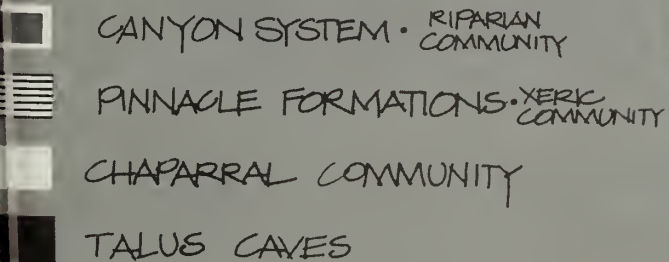 CANYON SYSTEM · RIPARIAN COMMUNITY
PINNACLE FORMATIONS · XERIC COMMUNITY
CHAPARRAL COMMUNITY
TALUS CAVES